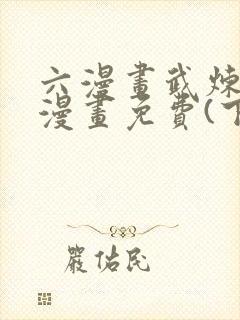 六漫畫武炼
漫畫免費(下
嚴佑民